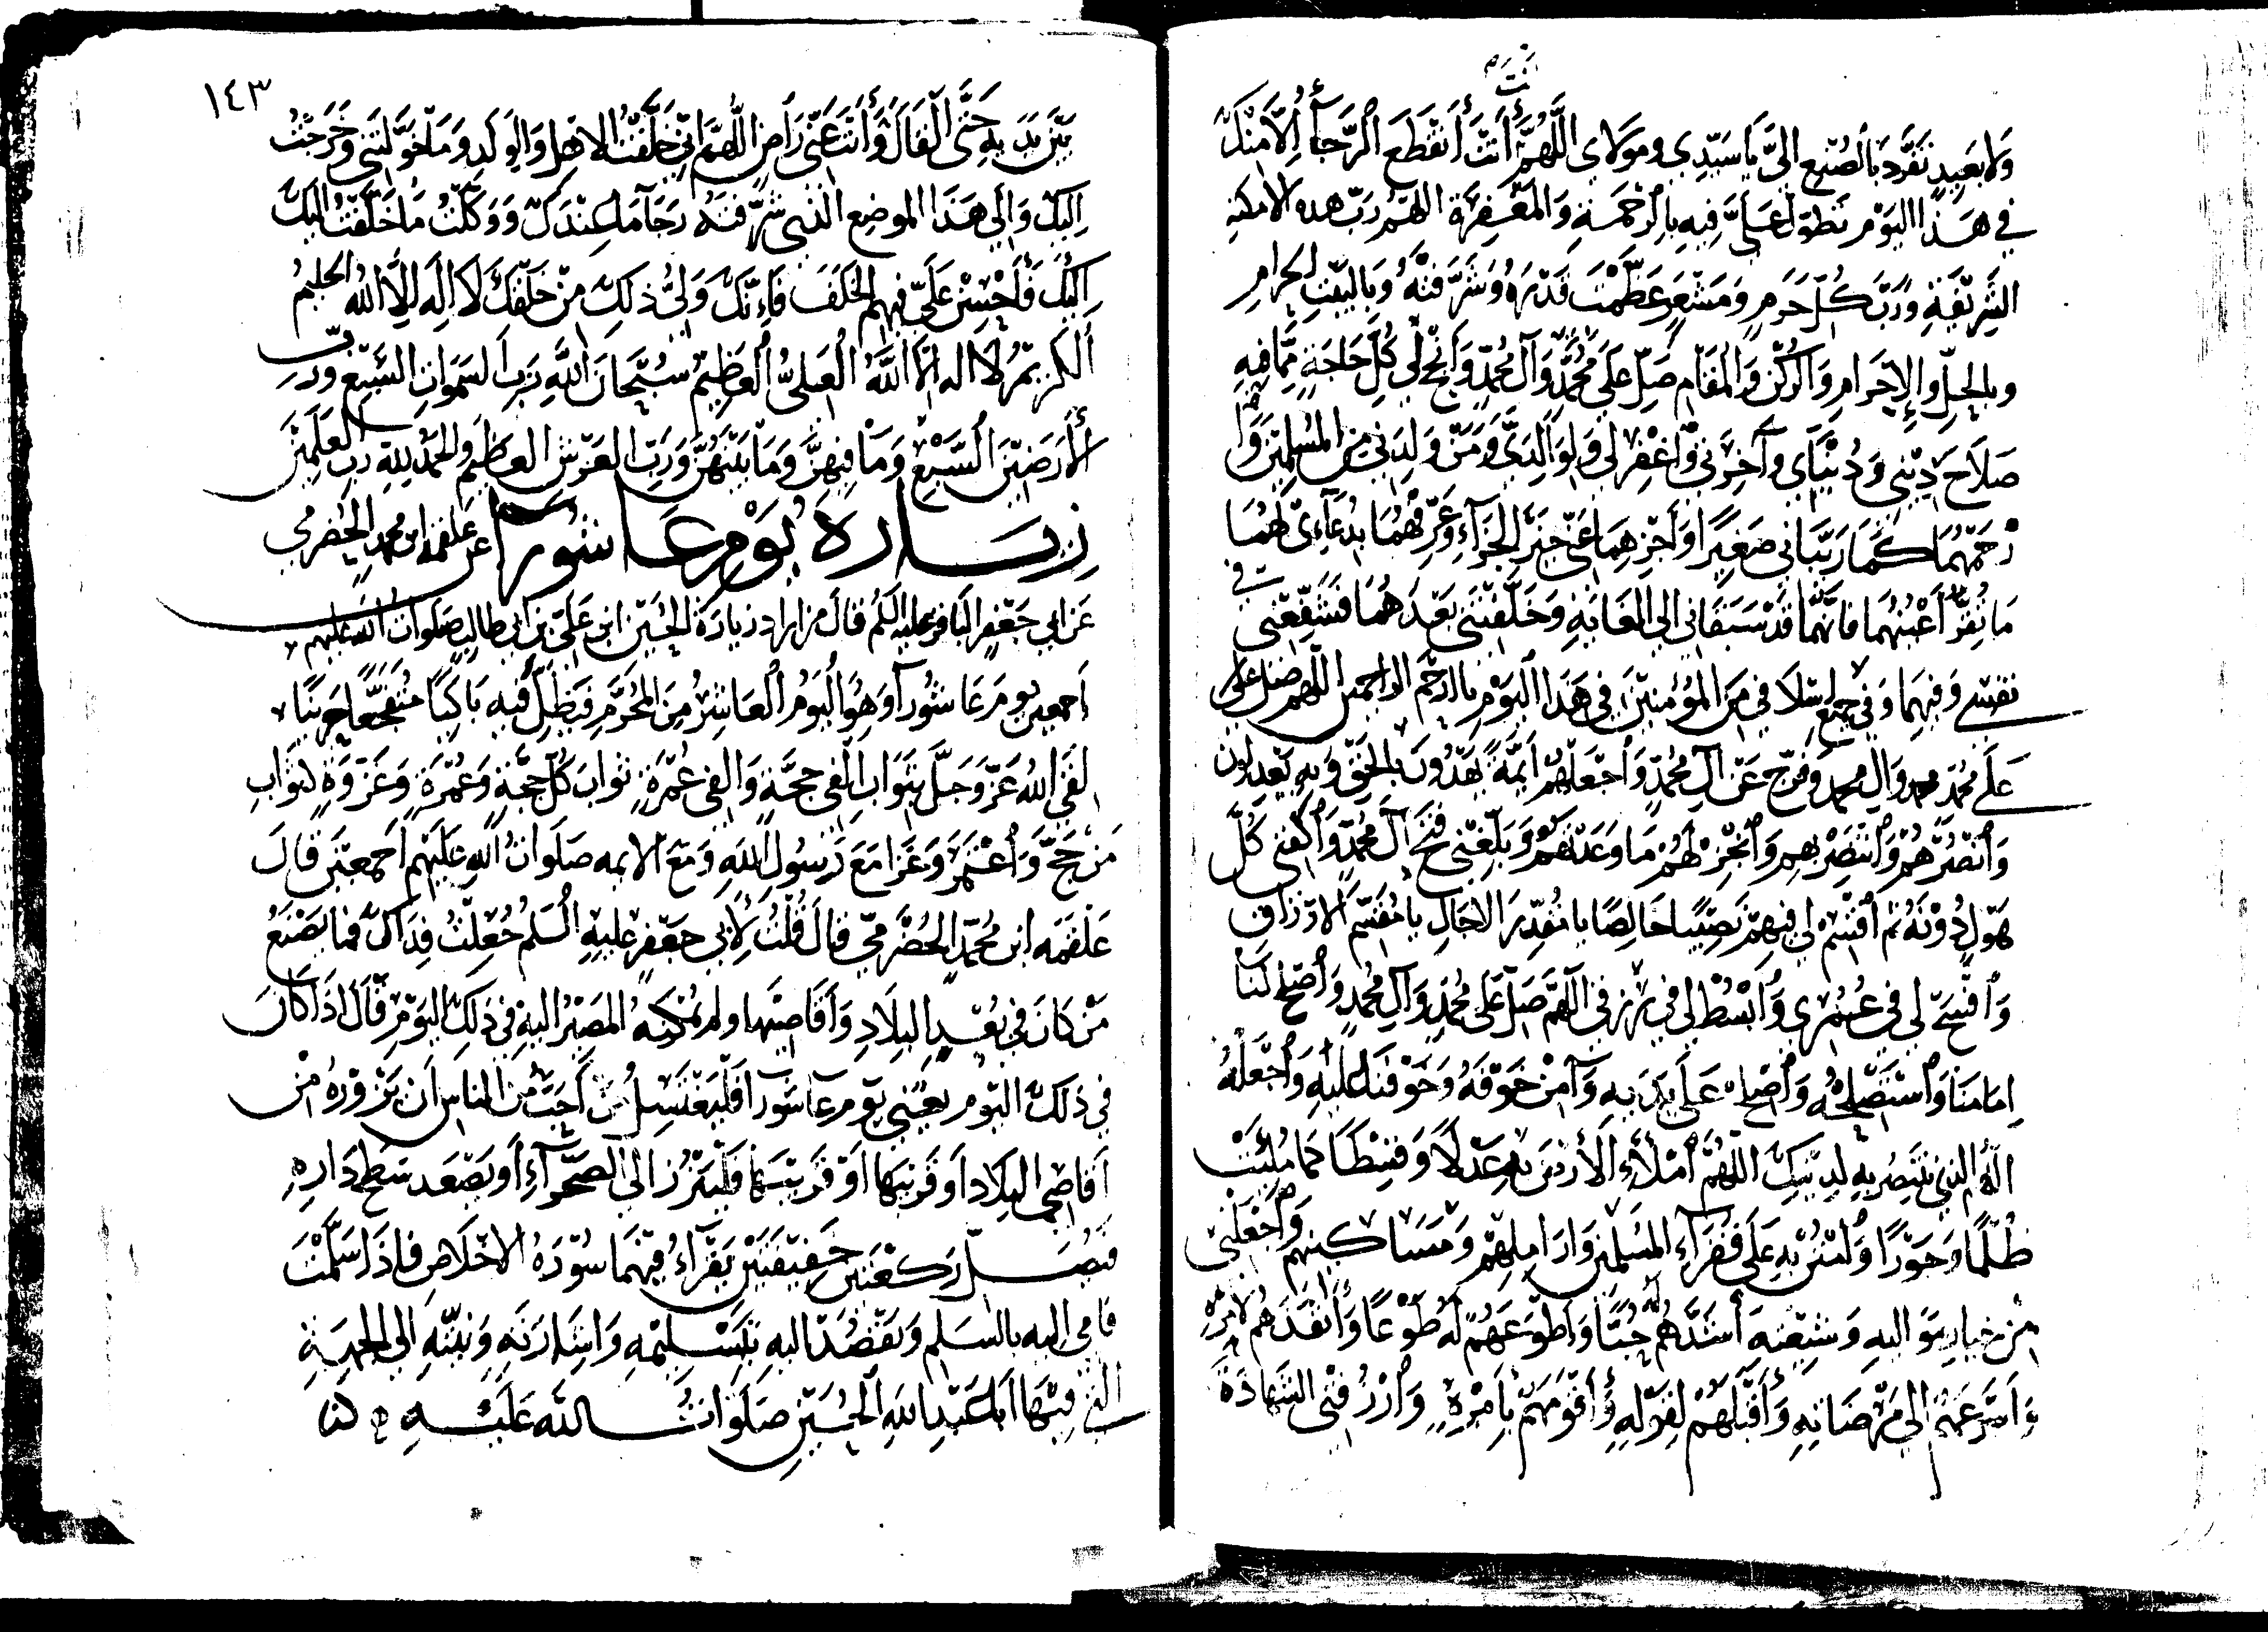 ولا بعيد تفرد بالصنع الي يا سيدي ومولاي اللهم أنت أنت أنقطع الرجآء إلا منك
في هذا اليوم تطول علي فيه بالرحمة والمغفرة اللهم رب هذه الامكنه
الشريفة ورب كل حرم ومشعر عظمت قدره وشرفته وبالبيت الحرام
وبالحل والإحرام والركن والمقام صل على محمد وآل محمد وأنجح لي كل حاجة مما فيه
صلاح ديني ودنياي وآخرتي وأغفر لي ولوالدي ومن ولدني من المسلمين وا
رحمهما كما ربياني صغيرا وأجزهما عني خير الجزآء وعرفهما بدعآءى لهما
ما تقر أعينهما فإنهما قد سبقاني الى الغاية وخلفتني بعدهما فشفعني في
نفسي وفيهما وفي جميع اسلافي من المؤمنين في هذا اليوم يا ارحم الراحمين اللهم صل على
على محمد وال محمد وفرج عن آل محمد وأجعلهم أيمة يهدون بالحق وبه يعدلون
وأنصرهم وأنتصر بهم وأنجز لهم ما وعدتهم وبلغني فتح آل محمد وأكفني كل
هول دونه ثم أقسم لي فيهم نصيبا خالصا يا مقدر الاجال يا مقسم الارزاق
وأفسح لي في عمري وأبسط لي في رزقي اللهم صل على محمد وآل محمد وأصلح لنا
إمامنا وأستصلحه وأصلح على يديه وآمن خوفه وخوفنا عليه وأجعله
اللهم الذي تنتصر به لدينك اللهم أملاء الأرض به عدلا وقسطا كما ملئت
ظلما وجورا وأمنن به على فقرآء المسلمين واراملهم ومساكينهم وأجعلني
من خيار مواليه وشيعته أشدهم له حبا وأطوعهم له طوعا وأنفذهم لامره
وأسرعهم الى مرضاته وأقبلهم لقوله وأقومهم بأمره وأرزقني الشهادة
١٤٣
بين يديه حتى القاك وأنت عني راض اللهم اني خلفت الاهل والولد وما خولتني وخرجت
إليك والي هذا الموضع الذي شرفته رجآء ما عندك ووكلت ما خلفت اليك
إليك فأحسن علي فيهم الخلف فإنك ولي ذلك من خلقك لا إله إلا الله الحليم
ألكريم لا اله الا الله العلي العظيم سبحان الله رب السموات السبع ورب
الأرضين السبع وما فيهن وما بينهن ورب العرش العظيم والحمد لله رب العلمين
زياره يوم عاشورا عن علقمة ابن محمد الحضرمي
عن ابي جعفر الباقر عليه السلم قال من اراد زيارة الحسين ابن علي بن ابي طالب صلوات الله عليهم
أجمعين يوم عاشورآء وهو اليوم العاشر من المحرم فيظل فيه باكيا متفجعا حزينا
لقي الله عز وجل بثواب ألفي حجة وألفي عمرة ثواب كل حجة وعمرة وغزوة كثواب
من حج وأعتمر وغزا مع رسول الله ومع الايمه صلوات الله عليهم أجمعين قال
علقمه ابن محمد الحضرمي قال قلت لأبي جعفر عليه السلم جعلت فداك فما يصنع
من كان في بعد البلاد وأقاصيها ولم يمكنه المصير اليه في ذلك اليوم قال اذا كان
في ذلك اليوم يعني يوم عاشورآء فليغتسل من أحب من الناس ان يزوره من
أقاصي البلاد أو قريبها أو قريتها فليبرز الى الصحرآء أو يصعد سطح داره
فيصل ركعتين خفيفتين يقراء فيهما سورة الاخلاص فاذا سلمت
فامي اليه بالسلم وتقصد اليه بتسليمه واشارته ونيته الى الجهة
التي فيها ابا عبد الله الحسين صلوات الله عليه